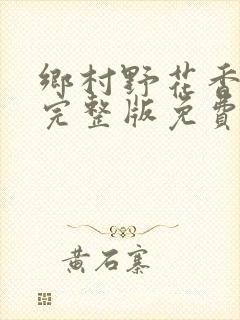 鄉村野花香
完整版免費
黄石寨